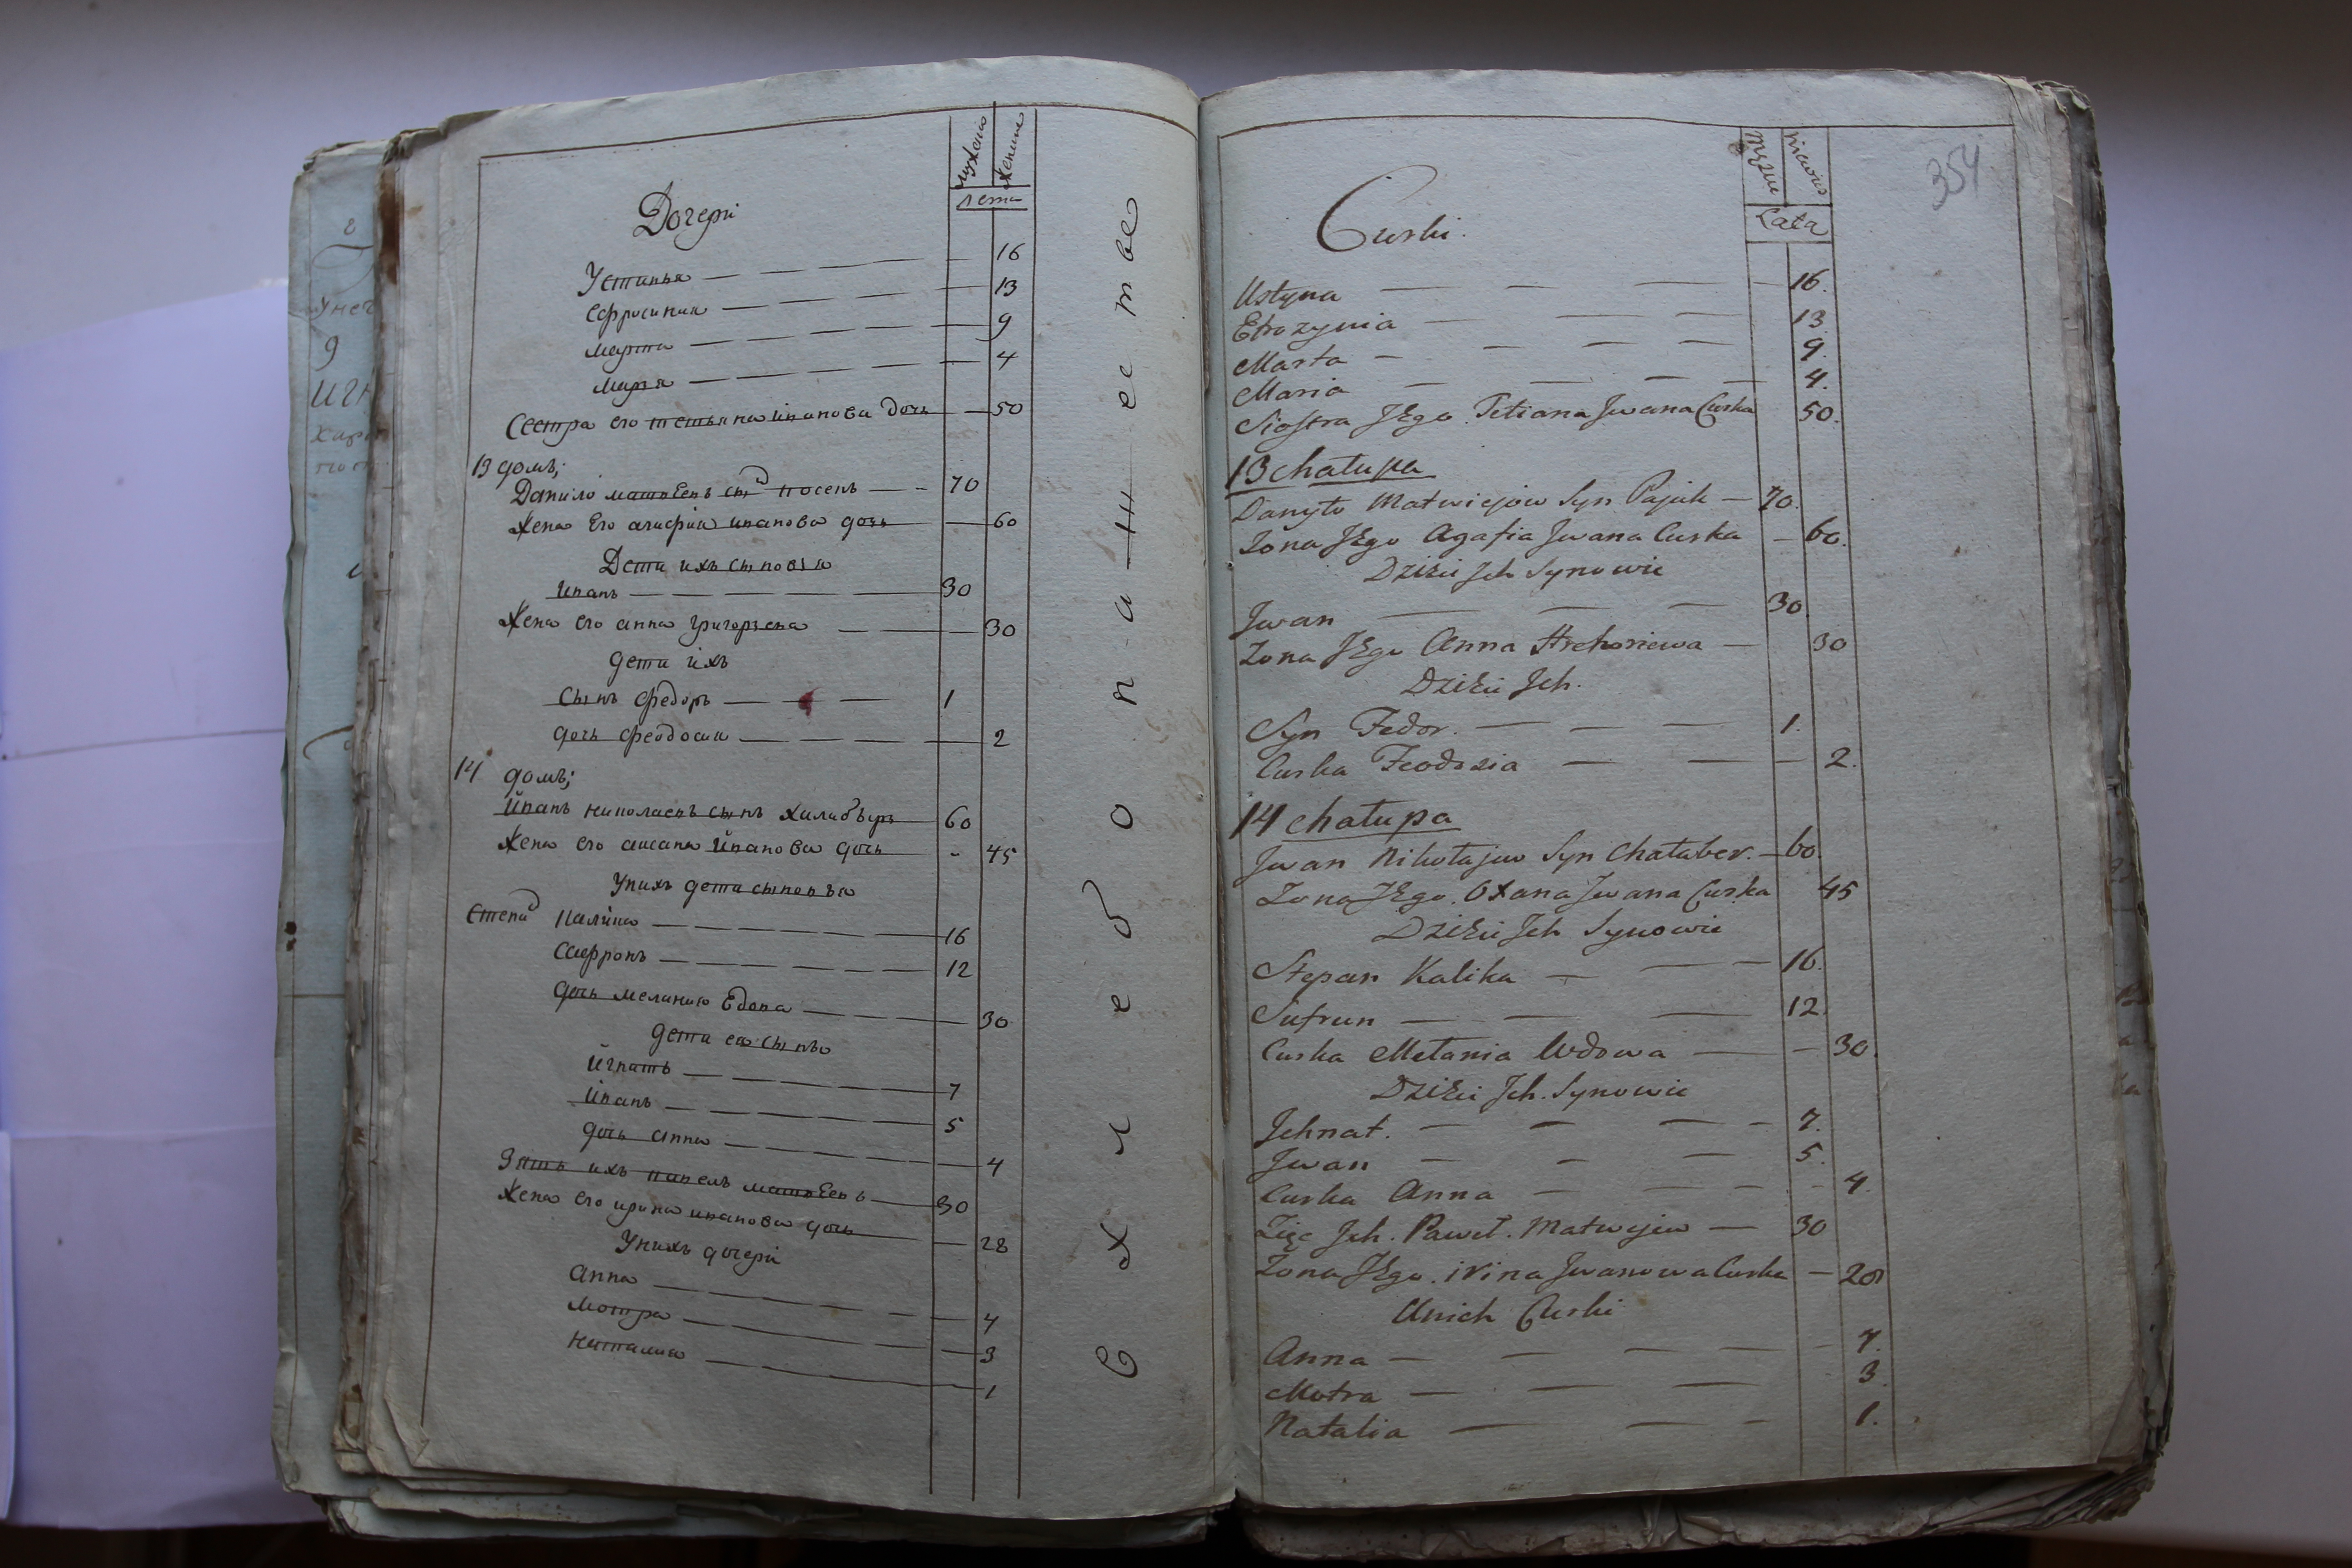 мужеска
женска
лета
Дочери
Устинья 16
Єфросиния 13
марта 9
марья 4
Сестра его тетьяна ивановa дочь 50
13 домъ;
Данило матвѣевъ сынъ 70
жена Его агафия иванова дочь 60
Дети ихъ сыновья
иванъ 30
жена его анна григорьева 30
дети ихъ
сынъ федоръ 1
дочь феодосия 2
14 домъ;
иванъ николаевъ сынъ халабѣръ 60
жена его аксана иванова дочь 45
Унихъ дети сыновья
степанъ калика 16
сафронъ 12
дочь мелания вдова 30
дети ея сынъ
игнатъ 7
иванъ 5
дочь анна 4
Зять ихъ павелъ матвѣевъ 30
жена его ирина иванова дочь 28
Унихъ дочери
анна 4
мотра 3
наталия 1
354
Męzkie
Lata
Curki.
Ustyna 16.
Efrozynia 13.
Marta 9.
Maria 4.
Siostra JEgo Tetiana Jwana Curka 50.
13 chałupa
Danyło Matwiejow Syn Pajuk 70.
Zona JEgo Agafia Jwana Curka 60.
Dzieci Jch Synowie
Jwan 30.
Zona JEgo Anna Hrehoriewa 30
Dzieci Jch.
Syn Fedor. 1.
Curka Feodozia 2.
14 chałupa
Jwan Nikołajuw Syn Chałaber. 60.
Zona JEgo. Oxana Jwana Curka 45
Dzieci Jch Synowie
Stepan Kalika 16.
Sufrun 12.
Curka Mełania Wdowa 30.
Dzieci Jch. Synowie
Jehnat. 7.
Jwan 5.
Curka Anna 4.
Zięc Jch. Paweł. Matwejew 30
Zona JEgo. irina Jwanowa Curka 28
Unich Curki
Anna 4.
Motra 3.
Natalia 1.